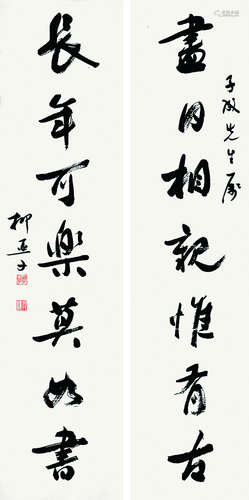 子 先生屬
盡日相親惟有石
長年可樂莫如書
柳亞子